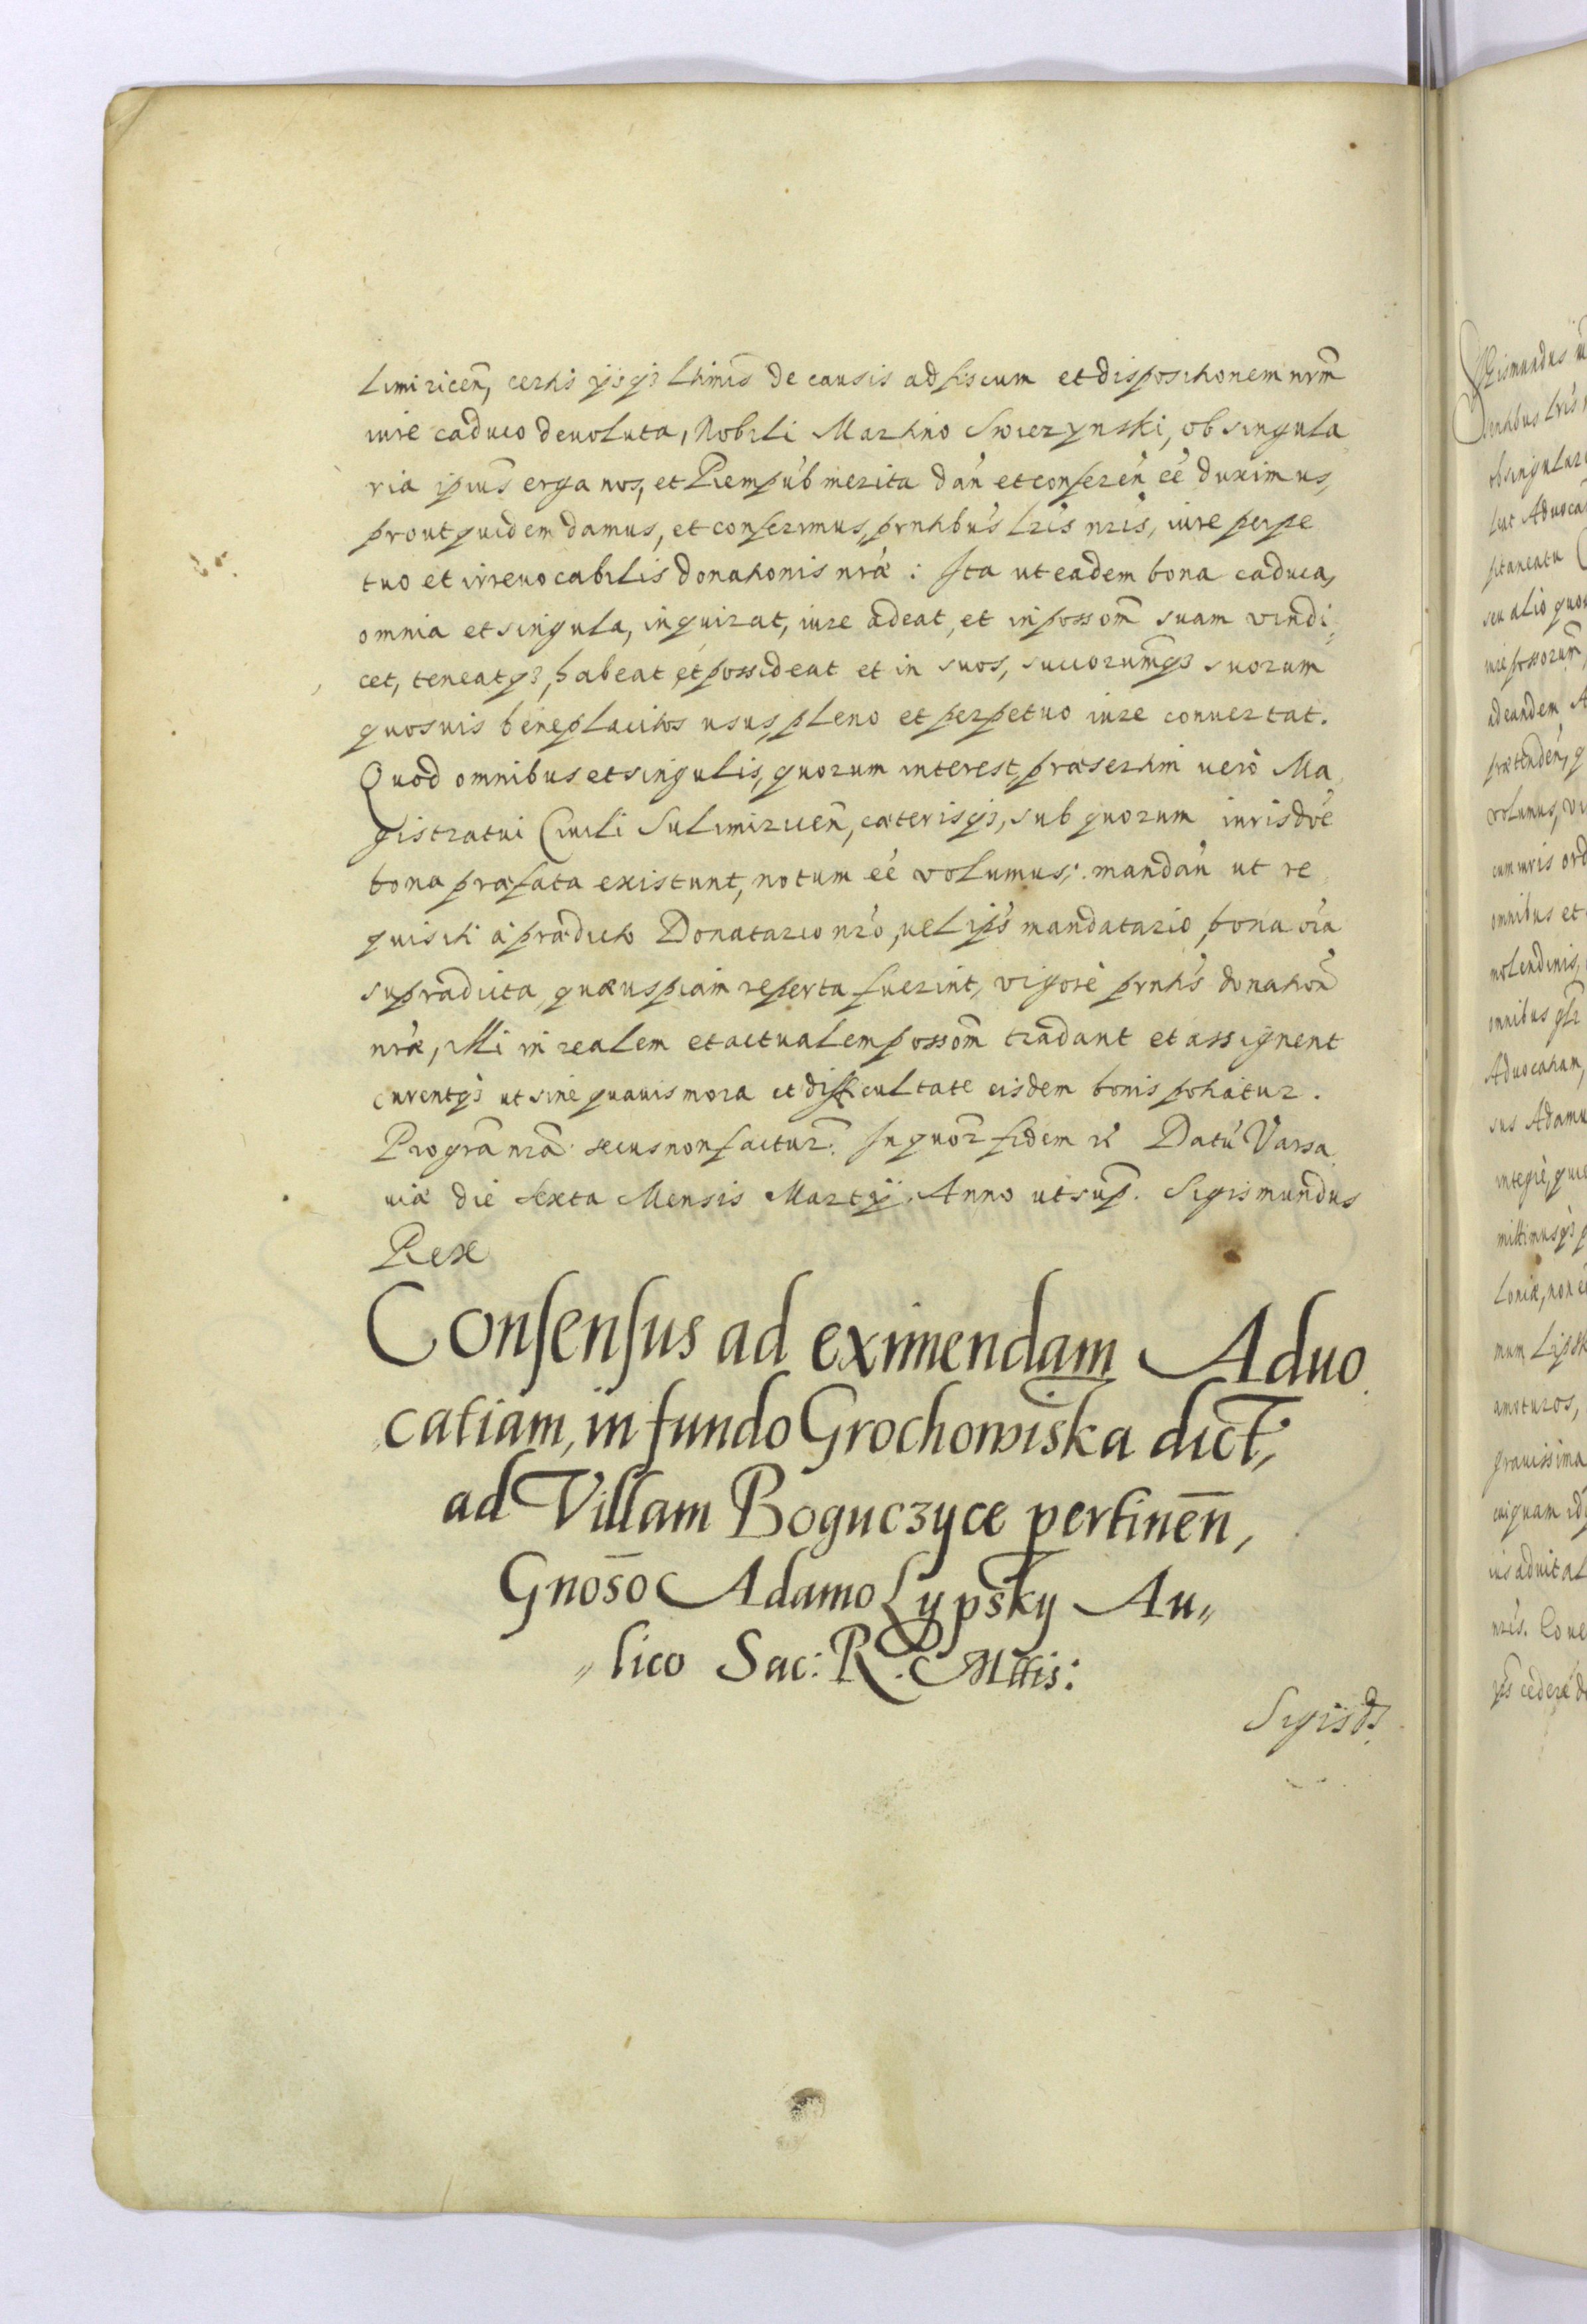 limiricen̄, certis ijsq₃ l̄timis de causis ad fiscum et dispositionem nr̄m
iure caduco deuoluta, Nobili Martino Swierzynski, ob singula
ria ipius̄ erga nos, et Rempub̄ merita dan̄ et conferen̄ eē duximus,
prout quidem damus, et conferimus, pn̄tibus lris nris, iure perpe
tuo et irreuocabilis donationis nrǣ: Ita ut eadem bona caduca,
omnia et singula, inquirat, iure adeat, et in possom̄ suam vindi,,
cet, teneatq₃, habeat et possideat et in suos, succorumq₃ suorum
quosuis beneplacitos usus, pleno et perpetuo iure conuertat.
Quod omnibus et singulis, quorum interest, præsertim uero Ma,
gistratui Ciuili Sulimiricen̄, cæterisq₃, sub quorum iurisdoe̅
bona præfata existunt, notum eē volumus, mandan̄ ut re,
quisiti a prædicto Donatario nrō, uel ipīs mandatario, bona oīa
supradicta, quæuspiam reperta fuerint, vigore pn̄tis donation̄
nrǣ, illi in realem et actualem possom̄ tradant et assignent
curentq₃ ut sine quauis mora et difficultate eisdem bonis potiatur.
Pro gr̄a nrā secus non factur̄. In quor̄ fidem r̄ Datū Varsa,
uiæ die sexta Mensis Martij. Anno ut sup̄. Sigismundus
Rex
Consensus ad eximendam Aduo,
,,catiam, in fundo Grochowiska dict̄,
ad Villam Boguczyce pertinen̄,
Gnoso̅ Adamo Lypsky Au,,
,,lico Sac: R. Mttis:
Sigisds
Sigismundus
ob singulari
sunt Aduoca
seu alio quo
ad eandem A
prætenden̄, q
volumus, vi
cum iuris ord
omnibus et
molendinis,
omnibus
Aduocatiam,
sus Adamu
integre, qui
mittimusq₃ p
loniæ, non
mum Lipsk
amoturos,
grauissima
cuiquam
ius aduital
nris. Co
cedere d